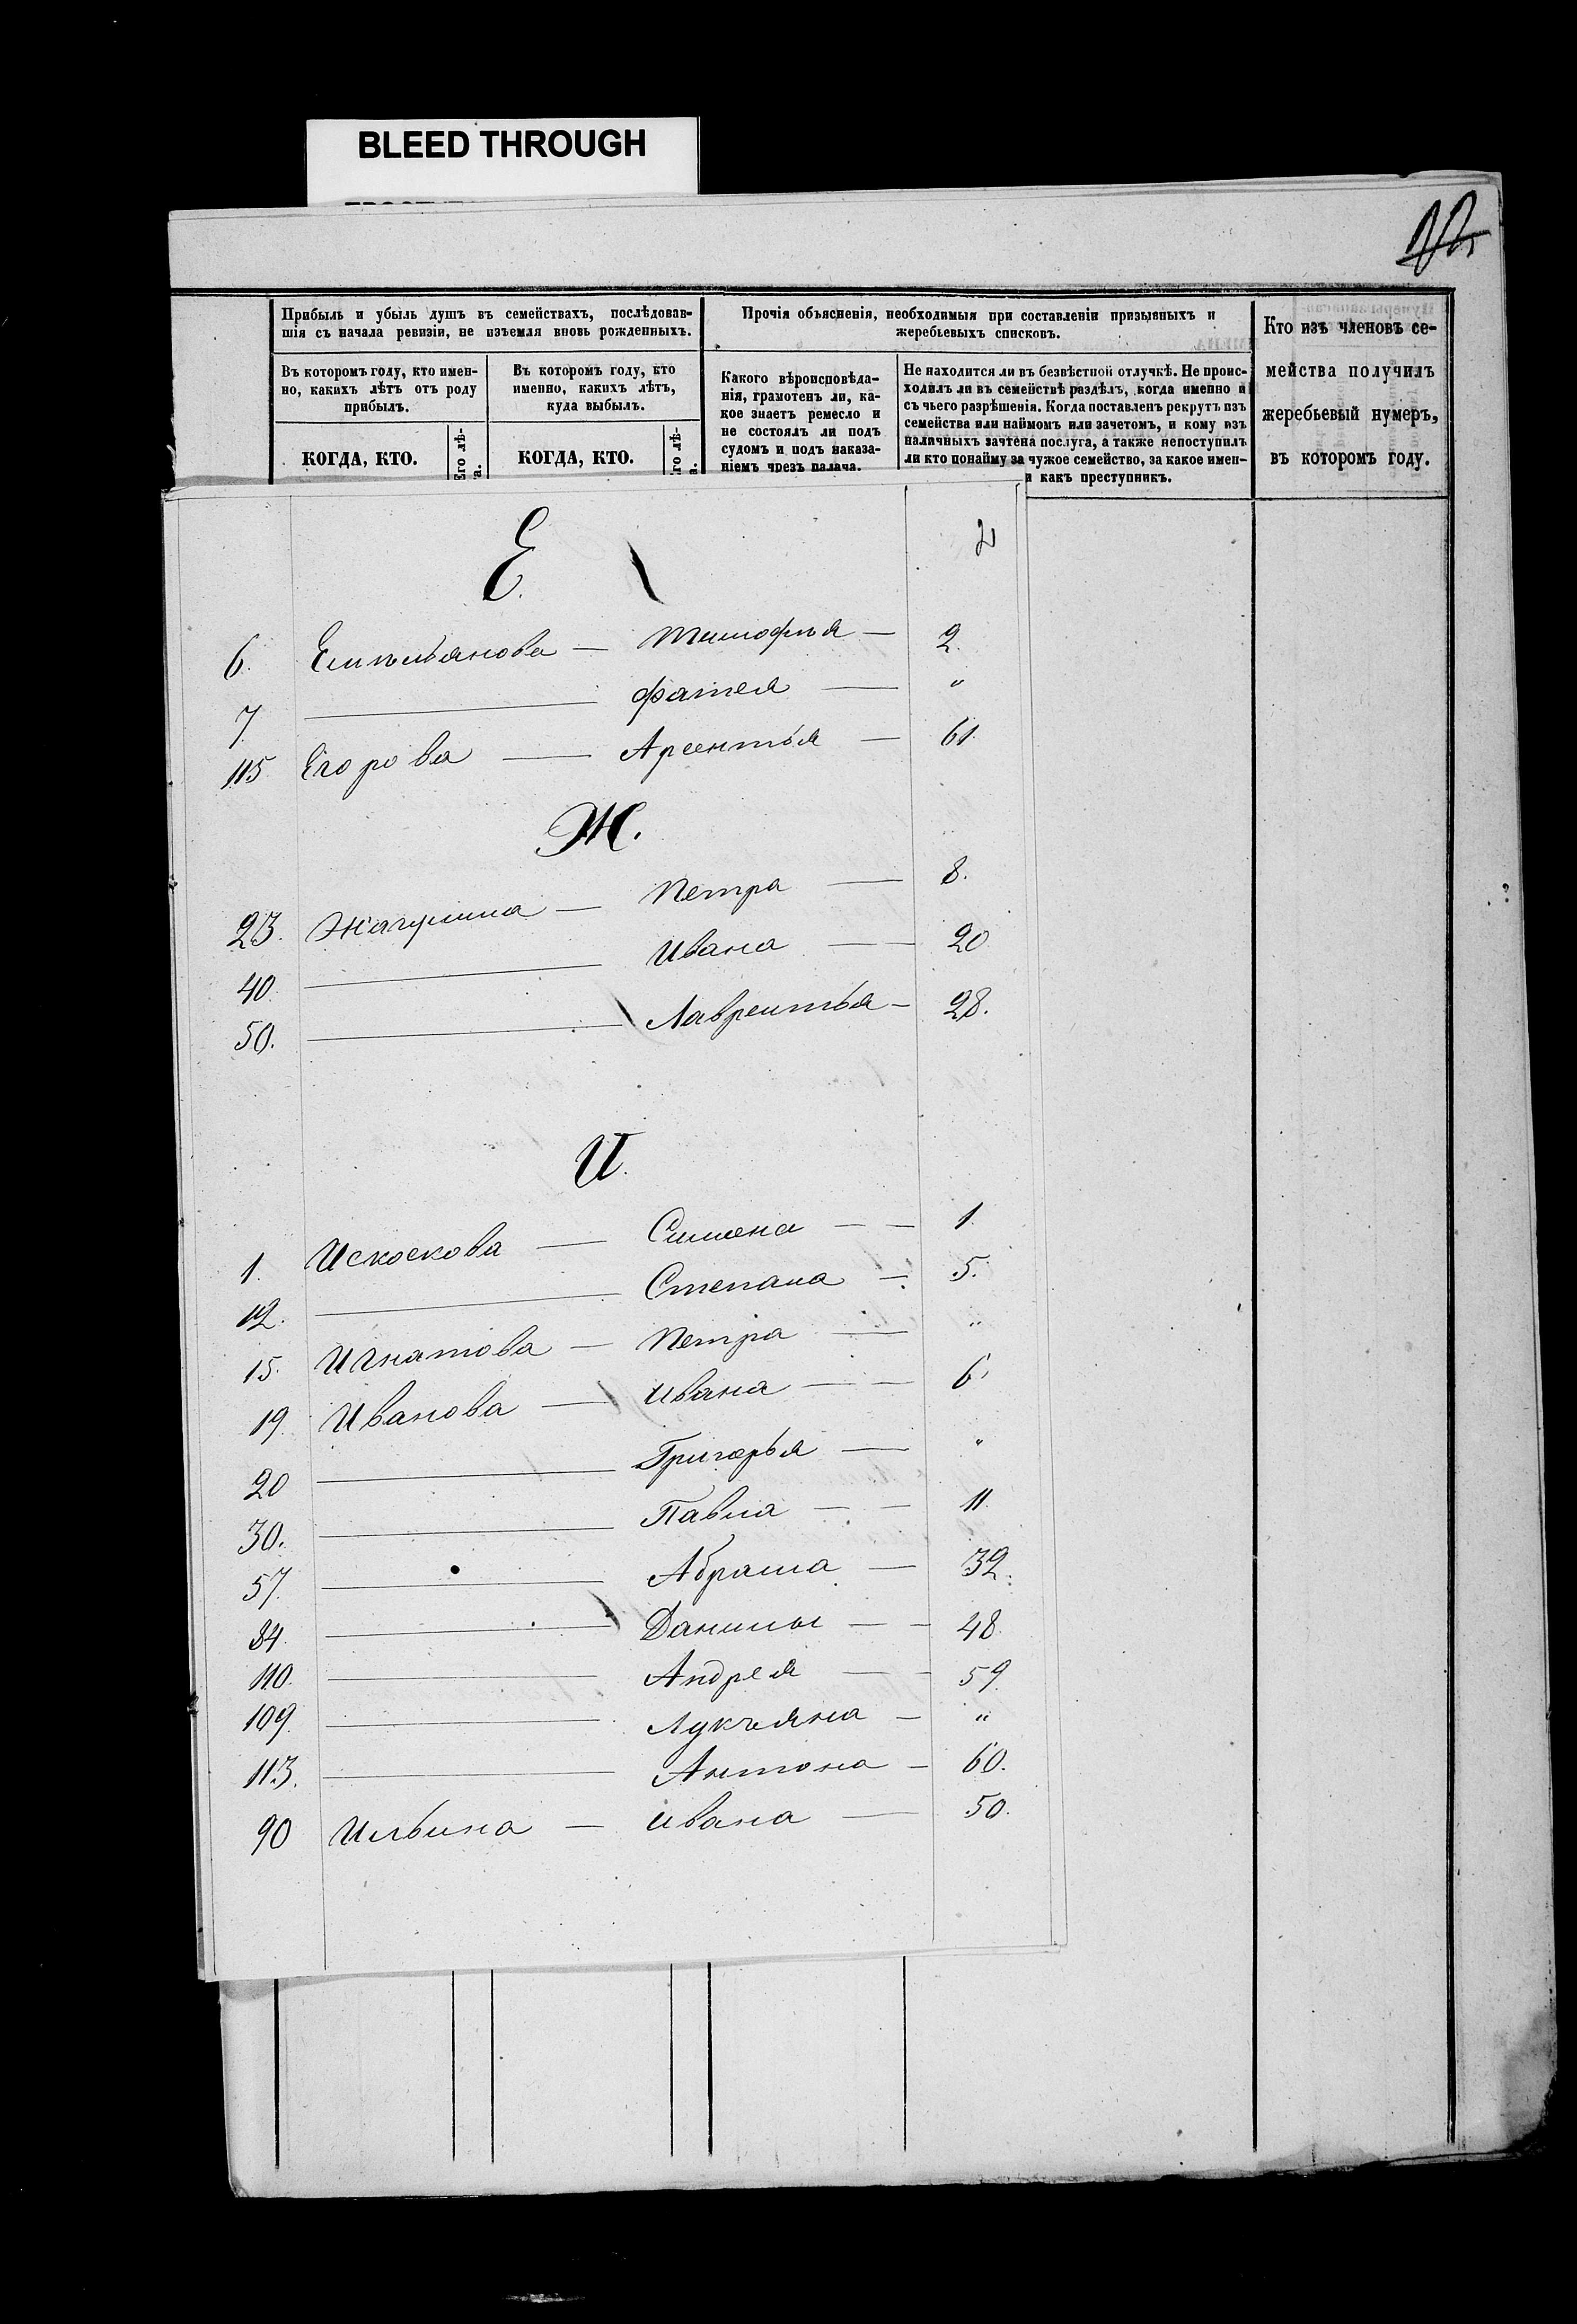 BLEED THROUGH
Прибыль и убыль душъ въ семействахъ, послѣдовав-
шія съ начала ревизіи, не изъемля вновь рожденныхъ.
Въ которомъ году, кто имен-
но, какихъ лѣтъ отъ роду
прибылъ.
Въ которомъ году, кто
именно, какихъ лѣтъ,
куда выбылъ.
КОГДА, КТО.
Его лѣ-
КОГДА, КТО.
Прочія объясненія, необходимыя при составленіи призывныхъ и
жеребьевыхъ списковъ.
Какого вѣроисповѣда-
нія, грамотенъ ли, ка-
кое знаетъ ремесло и
не состоялъ ли подъ
судомъ и подъ наказа-
ніемъ чрезъ палача.
Не находится ли въ безвѣстной отлучкѣ. Не проис-
ходилъ ли въ семействѣ раздѣлъ, когда именно и
съ чьего разрѣшенія. Когда поставленъ рекрутъ изъ
семейства или наймомъ или зачетомъ, и кому изъ
наличныхъ зачтена послуга, а также непоступилъ
ли кто понайму за чужое семейство, за какое имен-
и какъ преступникъ.
Кто изъ членовъ се-
мейства получилъ
жеребьевый нумеръ,
въ которомъ году.
Е.
6. Емельянова — Тимофѣя — 2.
7 — Фатея — "
115 Егорова — Арсентья — 61.
Ж.
23. Жагулина — Петра — 8.
40. — Ивана — 20
50. — Лаврентья — 28.
И.
1. Искоскова — Симена — 1.
12. — Степана — 5.
15. Игнатова — Петра — "
19. Иванова — Ивана — 6.
20 — Григорья — "
30. — Павла — 11.
57 — Абрама — 32.
84. — Данилы — 48
110. — Андрея — 59.
109. — Лукъяна — "
113. — Антона — 60.
90 Ильина — Ивана — 50.